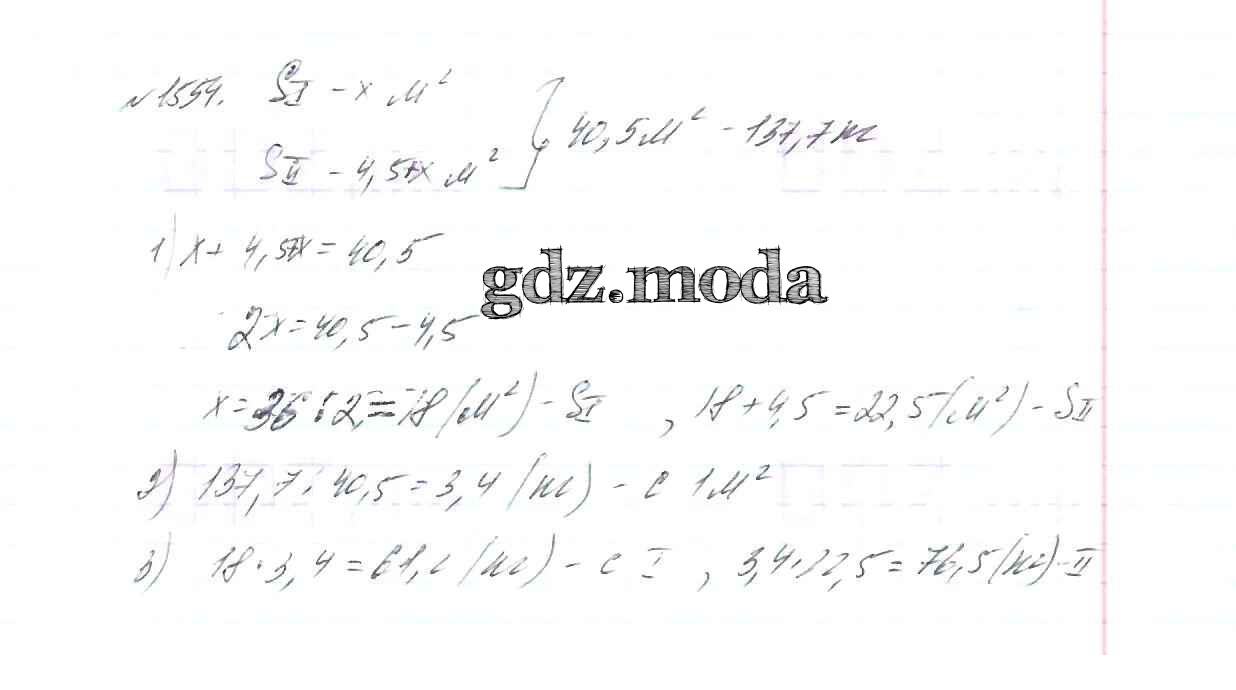 №1554. SI – x м²
SII – 4,5+x м² } 40,5м² – 137,7кг
1) x + 4,5+x = 40,5
gdz.moda
2x = 40,5 – 4,5
x = 36 : 2 = 18 (м²) – SI , 18 + 4,5 = 22,5 (м²) – SII
2) 137,7 : 40,5 = 3,4 (кг) – с 1м²
3) 18 · 3,4 = 61,2 (кг) – с I , 3,4 · 22,5 = 76,5 (кг) – II